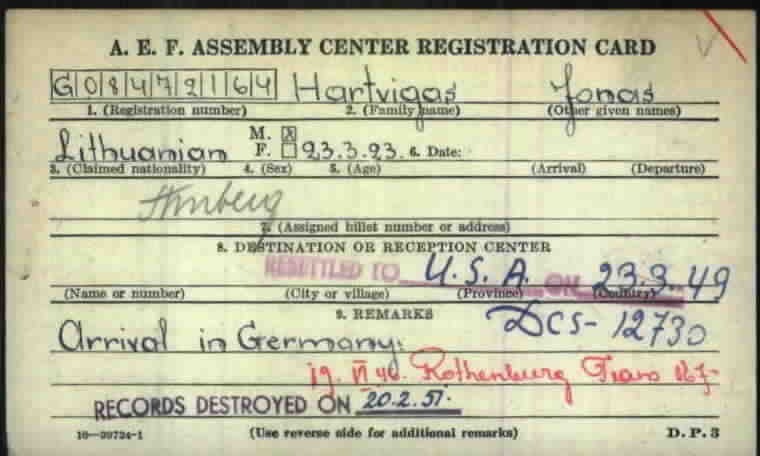 A. E. F. ASSEMBLY CENTER REGISTRATION CARD
G08472164 Hartvigas Jonas
1. (Registration number) 2. (Family name) (Other given names)
Lithuanian M. ☒ F. ☐ 23.3.23. 6. Date:
3. (Claimed nationality) 4. (Sex) 5. (Age) (Arrival) (Departure)
7. (Assigned billet number or address)
8. DESTINATION OR RECEPTION CENTER
RESETTLED TO U.S.A. ON 23.3.49
(Name or number) (City or village) (Province) (Country)
9. REMARKS
DCS-12730
Arrival in Germany:
19. VI 46. Rothenburg Trans
RECORDS DESTROYED ON 20.2.51.
16—39724-1 (Use reverse side for additional remarks) D. P. 3